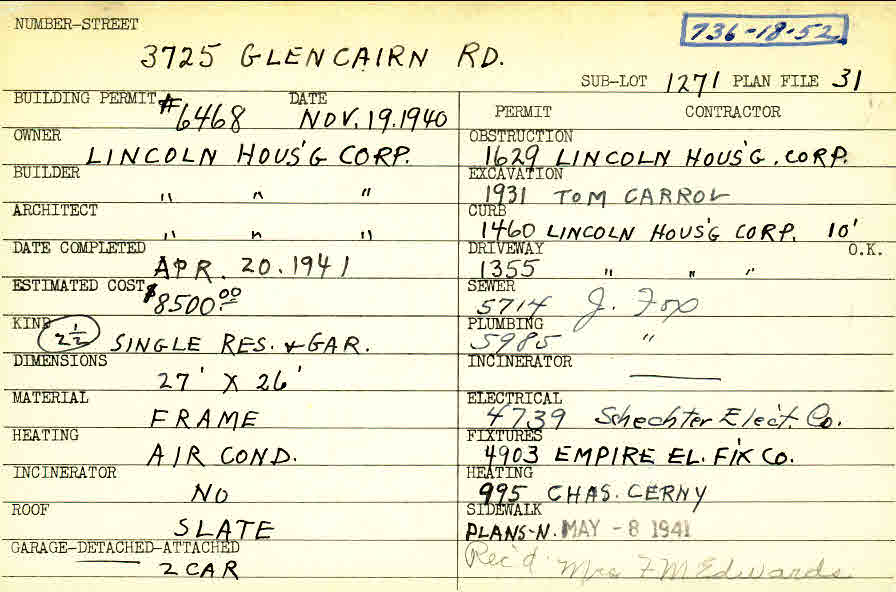 NUMBER-STREET
736-18-52
3725 GLENCAIRN RD.
SUB-LOT 1271 PLAN FILE 31
BUILDING PERMIT #6468 DATE NOV. 19. 1940
OWNER
LINCOLN HOUS'G CORP.
BUILDER
" " "
ARCHITECT
" " "
DATE COMPLETED
APR. 20. 1941
ESTIMATED COST $8500.00
KIND
2 1/2 SINGLE RES. & GAR.
DIMENSIONS
27' X 26'
MATERIAL
FRAME
HEATING
AIR COND.
INCINERATOR
NO
ROOF
SLATE
GARAGE-DETACHED-ATTACHED
2 CAR
PERMIT CONTRACTOR
OBSTRUCTION
1629 LINCOLN HOUS'G. CORP.
EXCAVATION
1931 TOM CARROL
CURB
1460 LINCOLN HOUS'G CORP. 10'
DRIVEWAY O.K.
1355 " " "
SEWER
5714 J. Fox
PLUMBING
5985 "
INCINERATOR
ELECTRICAL
4739 Schechter Elect. Co.
FIXTURES
4903 EMPIRE EL. FIX CO.
HEATING
995 CHAS. CERNY
SIDEWALK
PLANS-N. MAY -8 1941
Rec'd. Mrs F M Edwards